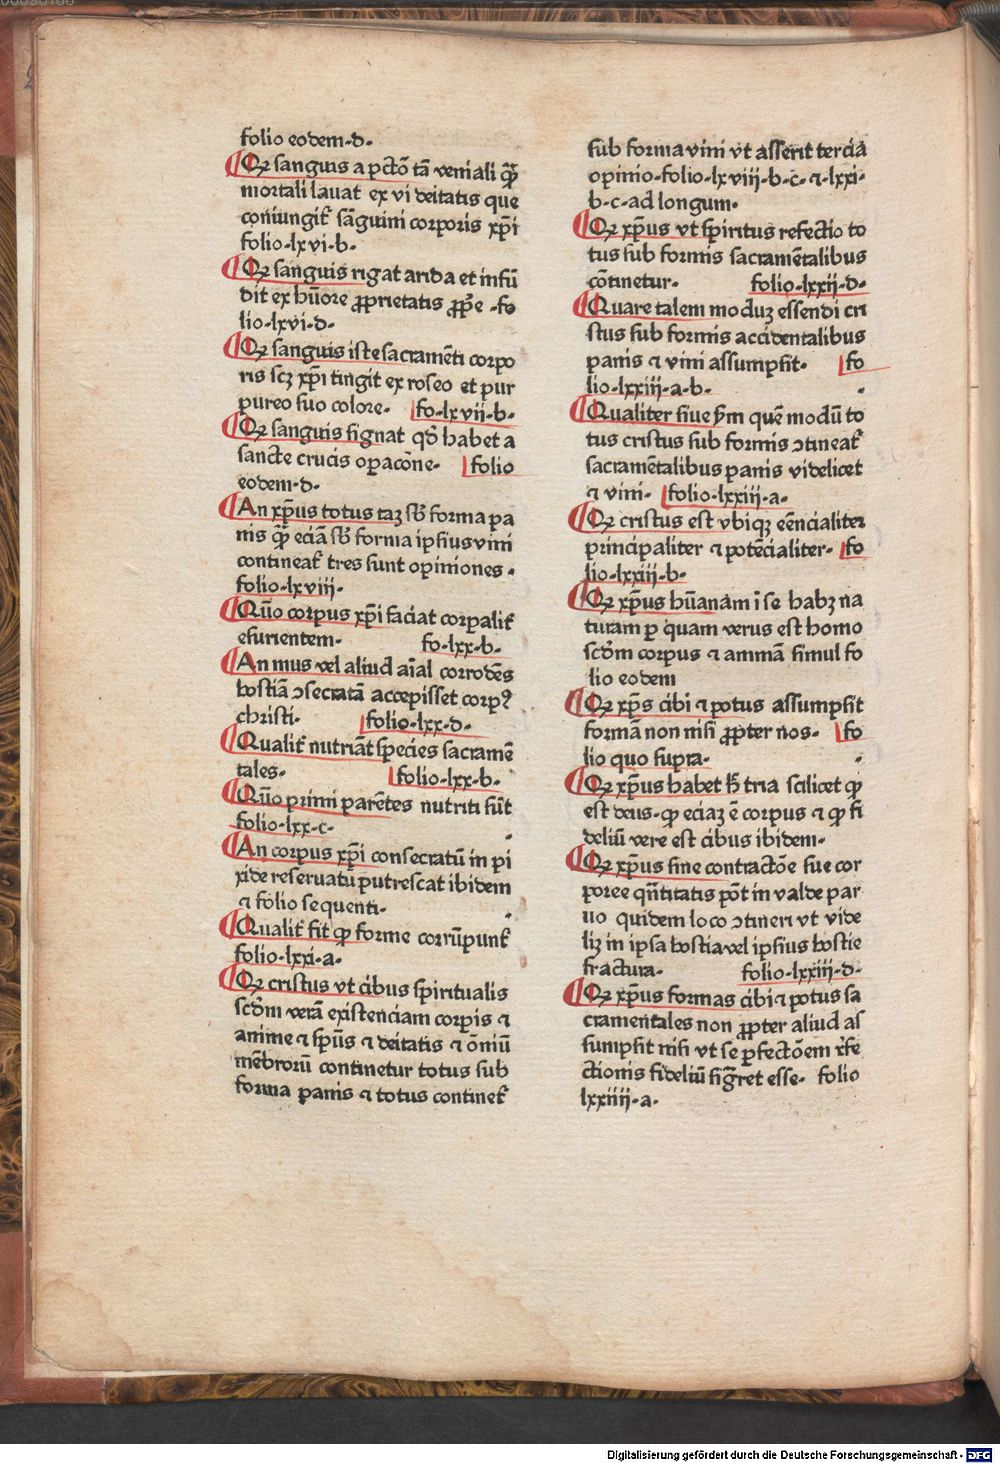 folio eodem·d·
Qꝫ sanguis a pctõ tã veniali ꝙ̃
mortali lauat ex vi deitatis que
coniungit᷑ sãguini corporis xp̃i
folio·lxvi·b·
Qꝫ sanguis rigat arida et infũ
dit ex hũore ꝓprietatis ꝓp̃e ·fo
lio·lxvi·d·
Qꝫ sanguis iste sacramẽti corpo
ris scꝫ xp̃i tingit ex roseo et pur
pureo suo colore· fo·lxvii·b·
Qꝫ sanguis signat qð habet a
sancte crucis oꝑacõne· folio
eodem·d·
An xp̃us totus taꝫ sb̾ forma pa
nis ꝙ̃ eciã sb̾ forma ipsius vini
contineat᷑ tres sunt opiniones·
folio·lxviii·
Quõ corpus xp̃i faciat corꝑalit᷑
esurientem· fo·lxx·b·
An mus vel aliud aĩal corrodẽs
hostiã ɔsecratã accepisset corpꝰ
christi· folio·lxx·d·
Qualit᷑ nutriãt species sacramẽ
tales· folio·lxx·b·
Quõ primi parẽtes nutriti sũt
folio·lxx·c·
An corpus xp̃i consecratũ in pi
xide reseruatũ putrescat ibidem
⁊ folio sequenti·
Qualit᷑ fit ꝙ forme corrũpunt᷑
folio·lxxi·a·
Qꝫ cristus vt cibus spiritualis
scðm verã existenciam corꝑis ⁊
anime ⁊ sp̃us ⁊ deitatis ⁊ õniũ
mẽbrorũ continetur totus sub
forma panis ⁊ totus continet᷑
sub forma vini vt asserit tercia
opinio·folio·lxviij·b·c·⁊·lxxi·
b·c·ad longum·
Qꝫ xp̃us vt spiritus refectio to
tus sub formis sacramẽtalibus
cõtinetur· folio·lxxij·d·
Quare talem moduꝫ essendi cri
stus sub formis accidentalibus
panis ⁊ vini assumpsit· fo
lio·lxxiij·a·b·
Qualiter siue ẜm quẽ modũ to
tus cristus sub formis ɔtineat᷑
sacramẽtalibus panis videlicet
⁊ vini· folio·lxxiij·a·
Qꝫ cristus est vbiqꝫ eẽncialiter
principaliter ⁊ potẽcialiter· fo
lio·lxxiij·b·
Qꝫ xp̃us hũanam ĩ se habꝫ na
turam ꝑ quam verus est homo
scðm corpus ⁊ animã simul fo
lio eodem
Qꝫ xp̃s cibi ⁊ potus assumpsit
formã non nisi ꝓpter nos· fo
lio quo supra·
Qꝫ xp̃us habet h̾ tria scilicet ꝙ
est deus·ꝙ eciaꝫ ẽ corpus ⁊ ꝙ fi
deliũ vere est cibus ibidem·
Qꝫ xp̃us sine contractõe sue cor
poree qñtitatis põt in valde par
uo quidem loco ɔtineri vt vide
liꝫ in ipsa hostia vel ipsius hostie
fractura· folio·lxxiij·d·
Qꝫ xp̃us formas cibi ⁊ potus sa
cramentales non ꝓpter aliud as
sumpsit nisi vt se ꝑfectõem r̃fe
ctionis fideliũ sig̃ret esse· folio
lxxiiij·a·
Digitalisierung gefördert durch die Deutsche Forschungsgemeinschaft - DFG